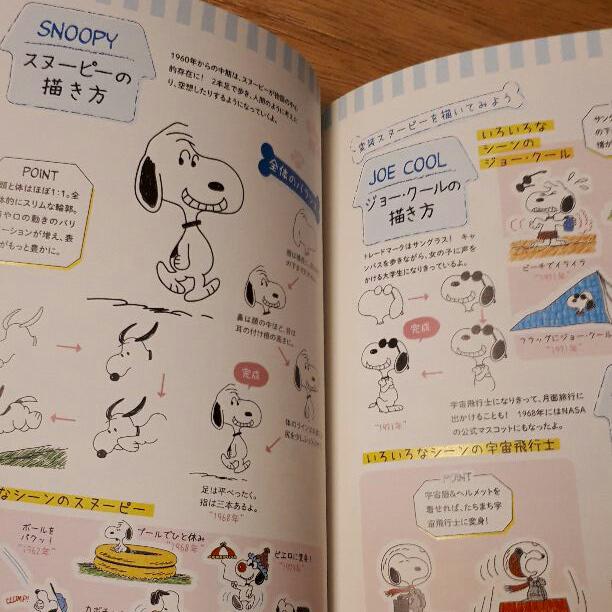 SNOOPY
スヌーピーの
描き方
1960年からの中期は、スヌーピーが
的存在に! 2本足で歩き、人間のように考えた
り、空想したりするようになっていくよ。
POINT
頭と体はほぼ1:1。全
体的にスリムな輪郭。
や口の動きのバリ
ーションが増え、表
がもっと豊かに。
全体のバランス
鼻は顔の中ほど、目は
耳の付け根の高さに。
完成
足は平べったく。
指は三本あるよ。
"1968年"
なシーンのスヌーピー
ボールを
パクッ!
"1962年"
プールでひと休み
"1968年"
ピエロに変身!
CLUMP!
変装スヌーピーを描いてみよう
JOE COOL
ジョー・クールの
描き方
トレードマークはサングラス! キャ
ンパスを歩きながら、女の子に声を
かける大学生になりきっているよ。
完成
"1971年"
いろいろな
シーンの
ジョー・クール
サング
ビーチでイライラ
"1991年"
ブラッグにジョー・クール
"1991年"
宇宙飛行士になりきって、月面旅行に
出かけることも! 1968年にはNASA
の公式マスコットにもなったよ。
いろいろなシーンの宇宙飛行士
POINT
宇宙服&ヘルメットを
着せれば、たちまち宇
宙飛行士に変身!